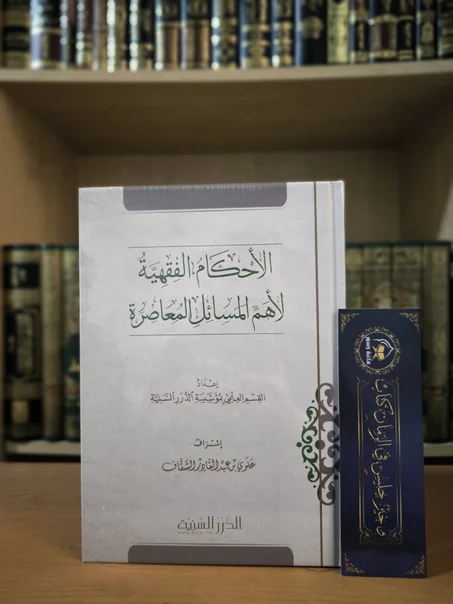 الأحكام الفقهية
لأهم المسائل المعاصرة
إعداد
القسم العلمي بمؤسسة الدرر السنية
إشراف
علوي بن عبد القادر السقاف
الدرر السنية
وخير جليس في الزمان كتاب